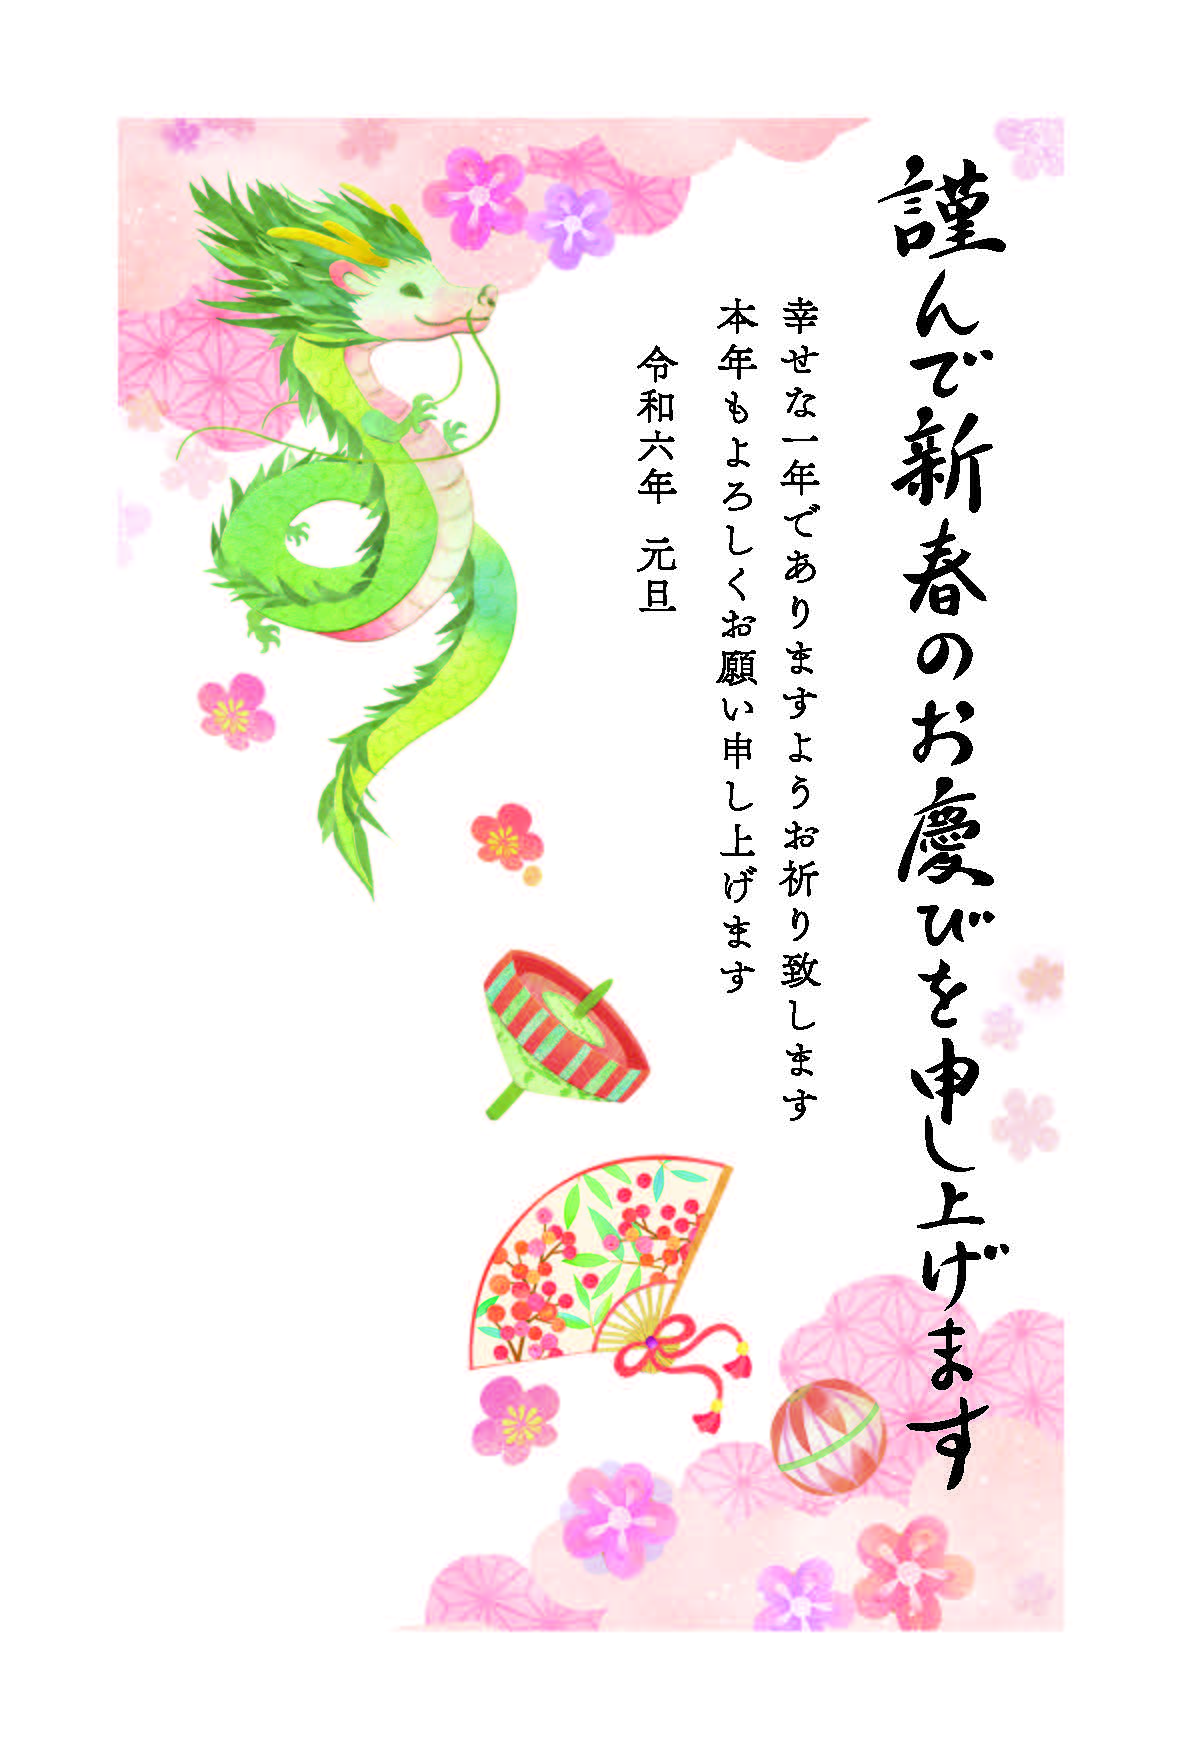 謹んで新春のお慶びを申し上げます
幸せな一年でありますようお祈り致します
本年もよろしくお願い申し上げます
令和六年 元旦